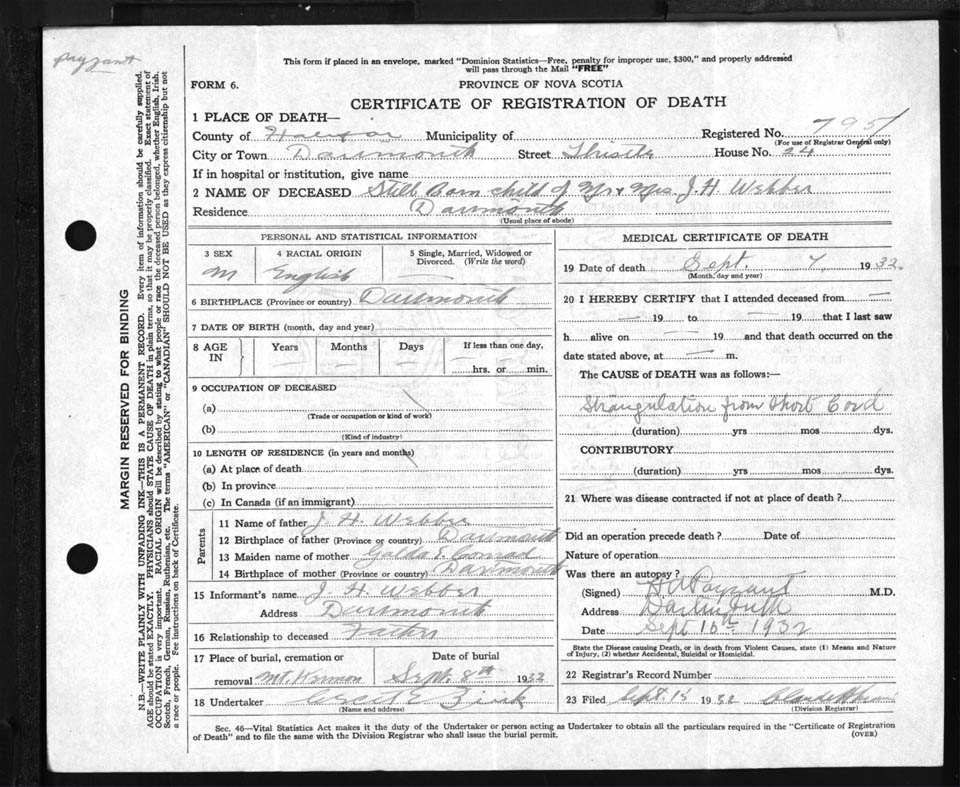 Payzant
This form if placed in an envelope, marked "Dominion Statistics—Free, penalty for improper use, $300," and properly addressed
will pass through the Mail "FREE"
FORM 6.
PROVINCE OF NOVA SCOTIA
CERTIFICATE OF REGISTRATION OF DEATH
1 PLACE OF DEATH—
County of Halifax Municipality of Registered No. 795
(For use of Registrar General only)
City or Town Dartmouth Street Thistle House No. 24
If in hospital or institution, give name
2 NAME OF DECEASED Still Born child of Mr & Mrs. J. H. Webber
Residence Dartmouth
(Usual place of abode)
PERSONAL AND STATISTICAL INFORMATION
3 SEX 4 RACIAL ORIGIN 5 Single, Married, Widowed or
Divorced. (Write the word)
M English —
6 BIRTHPLACE (Province or country) Dartmouth
7 DATE OF BIRTH (month, day and year)
8 AGE IN Years Months Days If less than one day,
— — — hrs. or min.
9 OCCUPATION OF DECEASED
(a)
(Trade or occupation or kind of work)
(b)
(Kind of industry)
10 LENGTH OF RESIDENCE (in years and months)
(a) At place of death
(b) In province
(c) In Canada (if an immigrant)
Parents
11 Name of father J. H. Webber
12 Birthplace of father (Province or country) Dartmouth
13 Maiden name of mother Golda E. Conrad
14 Birthplace of mother (Province or country) Dartmouth
15 Informant's name J. H. Webber
Address Dartmouth
16 Relationship to deceased Father
17 Place of burial, cremation or Date of burial
removal Mt. Hermon Sept. 8th 1932
18 Undertaker
(Name and address)
MEDICAL CERTIFICATE OF DEATH
19 Date of death Sept. 7, 1932.
(Month, day and year)
20 I HEREBY CERTIFY that I attended deceased from —
— 19 to — 19 that I last saw
h alive on — 19 and that death occurred on the
date stated above, at — m.
The CAUSE of DEATH was as follows:—
Strangulation from Short Cord
(duration) yrs mos dys.
CONTRIBUTORY
(duration) yrs mos dys.
21 Where was disease contracted if not at place of death?
Did an operation precede death? Date of
Nature of operation
Was there an autopsy?
(Signed) H A Payzant M.D.
Address Dartmouth
Date Sept 10th 1932
State the Disease causing Death, or in death from Violent Causes, state (1) Means and Nature
of Injury, (2) whether Accidental, Suicidal or Homicidal.
22 Registrar's Record Number
23 Filed Sept. 15 1932
(Division Registrar)
Sec. 46—Vital Statistics Act makes it the duty of the Undertaker or person acting as Undertaker to obtain all the particulars required in the "Certificate of Registration
of Death" and to file the same with the Division Registrar who shall issue the burial permit.
(OVER)
MARGIN RESERVED FOR BINDING
N.B.—WRITE PLAINLY WITH UNFADING INK—THIS IS A PERMANENT RECORD. Every item of information should be carefully supplied.
AGE should be stated EXACTLY. PHYSICIANS should STATE CAUSE OF DEATH in plain terms, so that it may be properly classified. Exact statement of
OCCUPATION is very important. RACIAL ORIGIN will be described by stating to what people or race the deceased person belonged, whether English, Irish,
Scotch, French, German, Russian, Ruthenian, etc. The terms "AMERICAN" or "CANADIAN" SHOULD NOT BE USED as they express citizenship but not
a race or people. See instructions on back of Certificate.